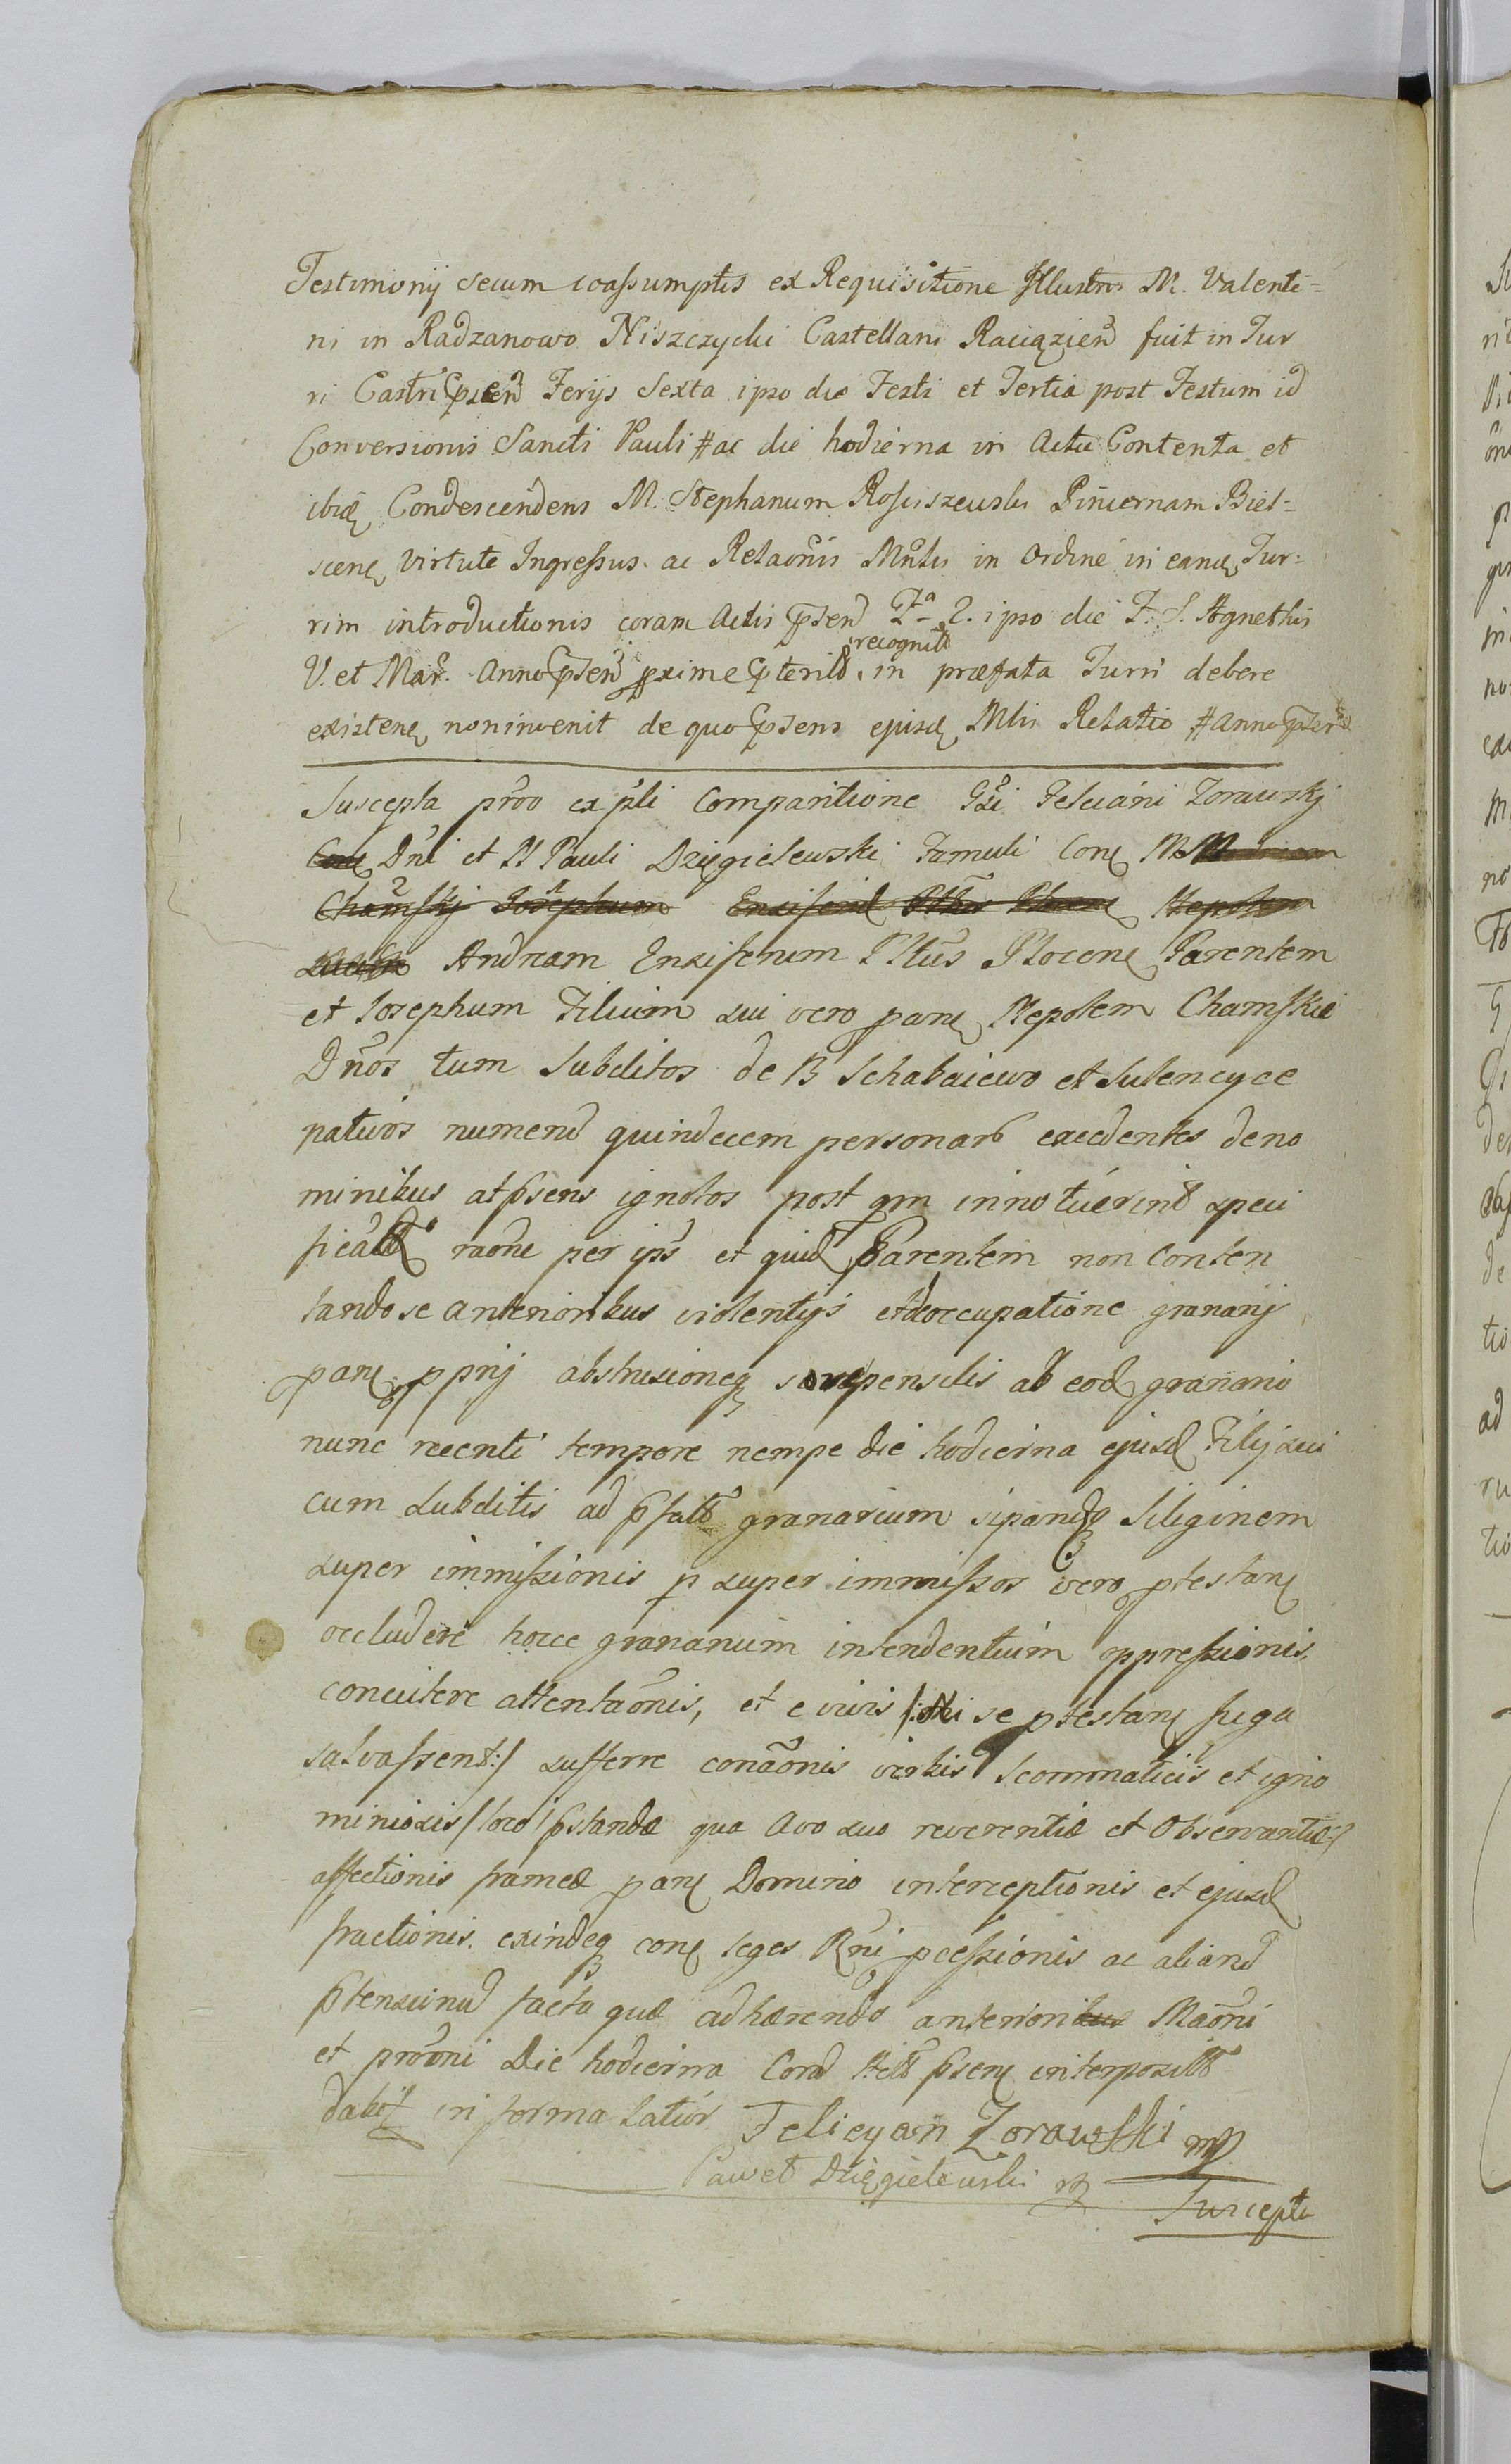 Testimonij secum coassumptis ex Requisitione Illustris M. Valenti=
ni in Radzanowo Niszczycki Castellani Raciązien fuit in Tur
ri Castri psen Ferijs Sexta ipso die Festi et Tertia post Festum id
Conversionis Sancti Pauli # ac die hodierna in Actu Contenta et
ibiq Condescendens M. Stephanum Rosciszewski Pincernam Biel=
scen virtute Ingressus ac Relaonis Mnlis in Ordine in eanq Tur=
rim introductionis coram Actis psen F.a 2. ipso die F. S. Agnethis
V. et Mar. Anno psen pxime pterito recognit in præfata Turri debere
existen non invenit de quo psens ejusd Mlis Relatio # anno psen
Suscepta prov ex pti Comparitione Gsi Feliciani Zorawskj
Dni et N Pauli Dzięgielewski Famuli Con MM
Chamskj Josephum Ensiferid Nepotem
Andream Ensiferum Pltus Plocen Parentem
et Josephum Filium sui vero pan Nepotem Chamskie
Dnos tum Subditos de B Schabaiewo et Sulencyce
nativos numero quindecem personar excedentes deno
minibus at psens ignotos post qm innotuerint speci
ficand raone per ips et quid Parentem non conten
tando se anterioribus violentijs et occupatione granarij
pan pprij abstrusioneq serepensilis ab eod granario
nunc recenti tempore nempe die hodierna ejusd Filij sui
cum Subditis ad pfat granarium sipando Siliginem
super immissionis p super immissos vero ptestan
occludere hocce granarium intendentium oppressionis,
concutere attentaonis, et e vivis /: ni se ptestan fuga
salvassent :/ sufferre conaonis verbis Scommaticis et igno
miniosis / loco pstandæ qua Avo suo reverentiæ et Observantiæ :/
affectionis frameæ pan Domino interceptionis et ejusd
fractionis. exindeq con leges Rni pcessionis ac aliand
ptensionud facta quæ adhærendo anteriori Maoni
et provoni Die hodierna Cord Actis psen interposit
dabit in forma latior Felicyan Zorawski mp
Paweł Dzięgielewski mp
Suscepta